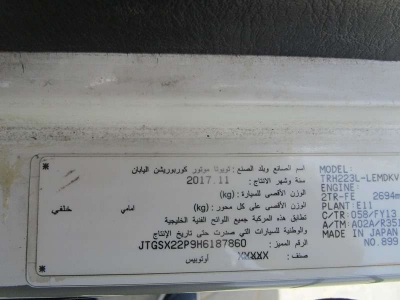 اسم الصانع وبلد الصنع : تويوتا موتور كوربوريشن اليابان
سنة وشهر الانتاج : 2017.11
الوزن الأقصى للسيارة : (kg)
الوزن الأقصى على كل محور : (kg) امامي خلفي
تطابق هذه المركبة جميع اللوائح الفنية الخليجية
والوطنية للسيارات التي صدرت حتى تاريخ الإنتاج
الرقم المميز : JTGSX22P9H6187860
صنف : XXXXX أوتوبيس
MODEL:
TRH223L-LEMDKV
ENGINE:
2TR-FE 2694m
PLANT: E11
C/TR: 058/FY13
A/TM: A02A/R351
MADE IN JAPAN
NO.899